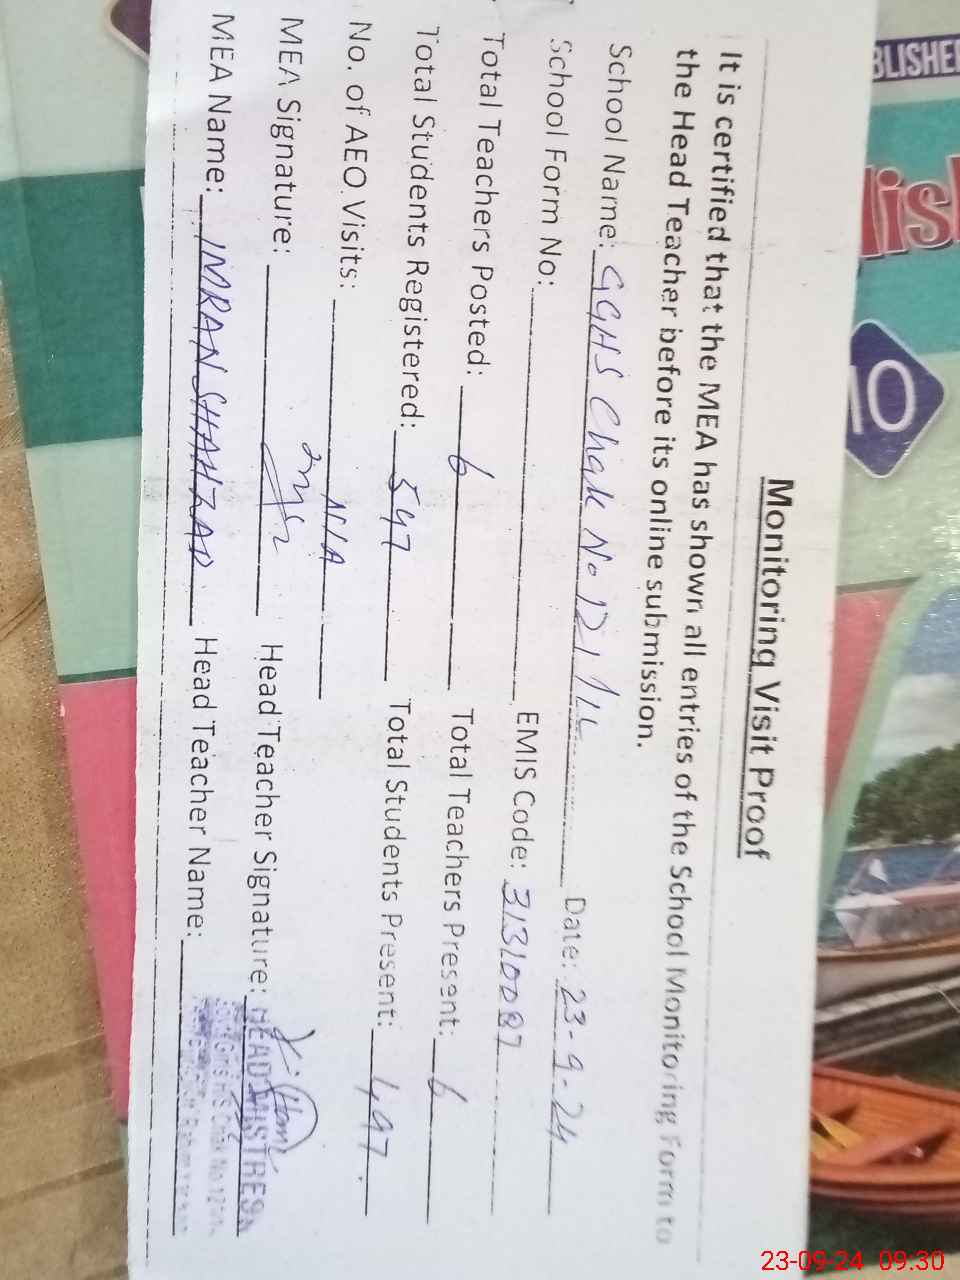 Monitoring Visit Proof
It is certified that the MEA has shown all entries of the School Monitoring Form to
the Head Teacher before its online submission.
School Name: GGHS Chak No 121/1L Date: 23-9-24
School Form No: EMIS Code: 31310087
Total Teachers Posted: 6 Total Teachers Present: 6
Total Students Registered: 547 Total Students Present: 497
No. of AEO Visits: N/A
MEA Signature: Head Teacher Signature:
HEAD MISTRESS
MEA Name: IMRAN SHAHZAD Head Teacher Name:
Govt Girls H/S Chak No.
BLISHE
lis
10
23-09-24 09.30